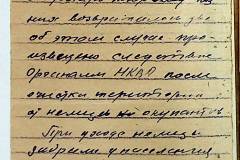 ния возвратилось две
об этом случае про-
изведено следствие
Органами НКВД после
очистки территории
от немецких оккупантов
При уходе немцы
забрали у населения